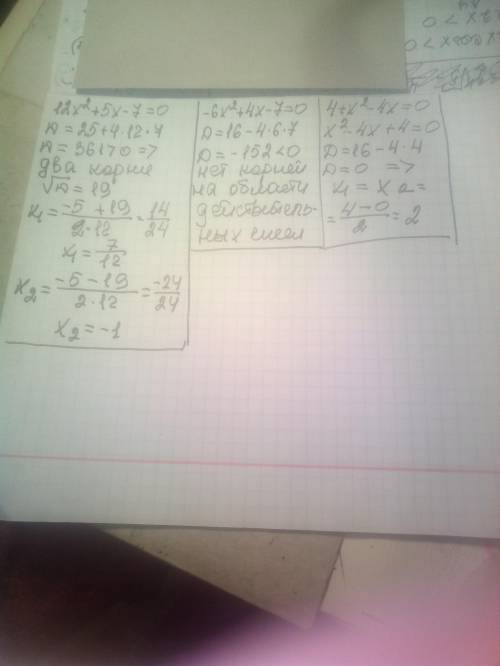 12x²+5x-7=0
D=25+4·12·7
D=361>0 =>
два корня
√D=19
x₁=(-5+19)/(2·12)=14/24
x₁=7/12
x₂=(-5-19)/(2·12)=-24/24
x₂=-1
-6x²+4x-7=0
D=16-4·6·7
D=-152<0
нет корней
на области
действитель-
ных чисел
4+x²-4x=0
x²-4x+4=0
D=16-4·4
D=0 =>
x₁=x₂=
=(4-0)/2=2